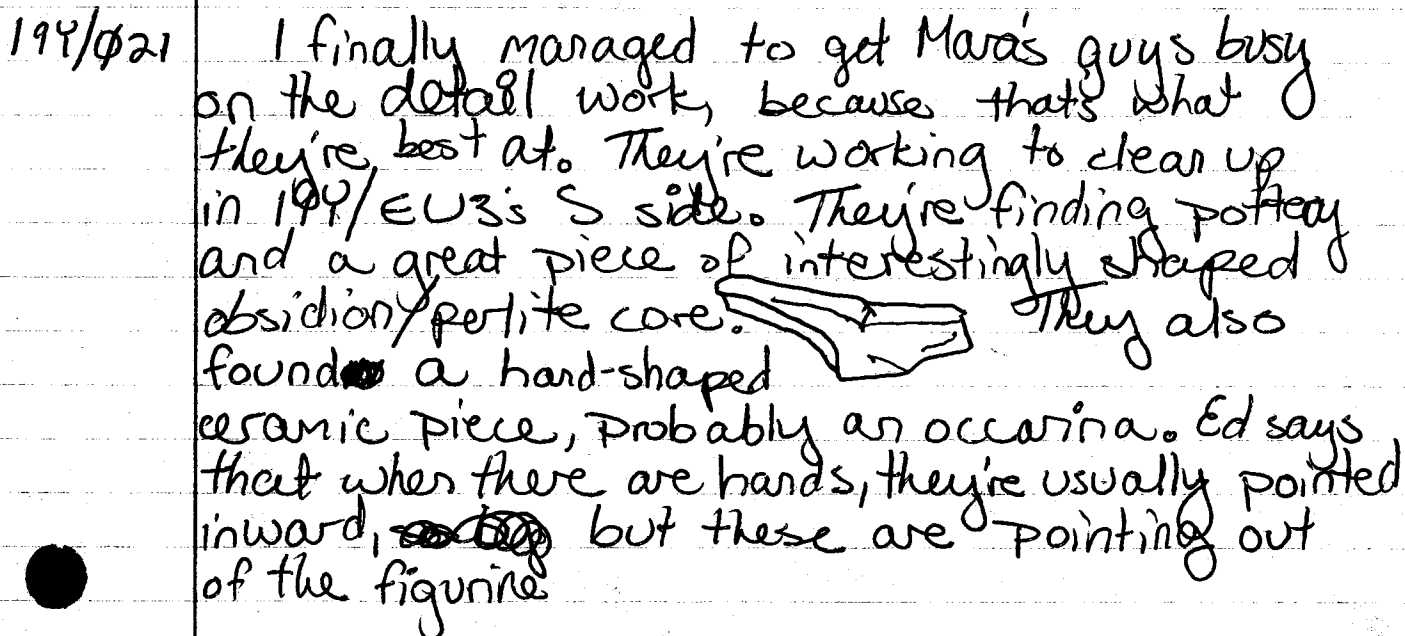 19Y/Ø21 I finally managed to get Mara's guys busy
on the detail work, because that's what
they're best at. They're working to clean up
in 19Y/EU3's S side. They're finding pottery
and a great piece of interestingly shaped
obsidion/perlite core. They also
found a hand-shaped
ceramic piece, probably an occarina. Ed says
that when there are hands, they're usually pointed
inward, but these are pointing out
of the figurine